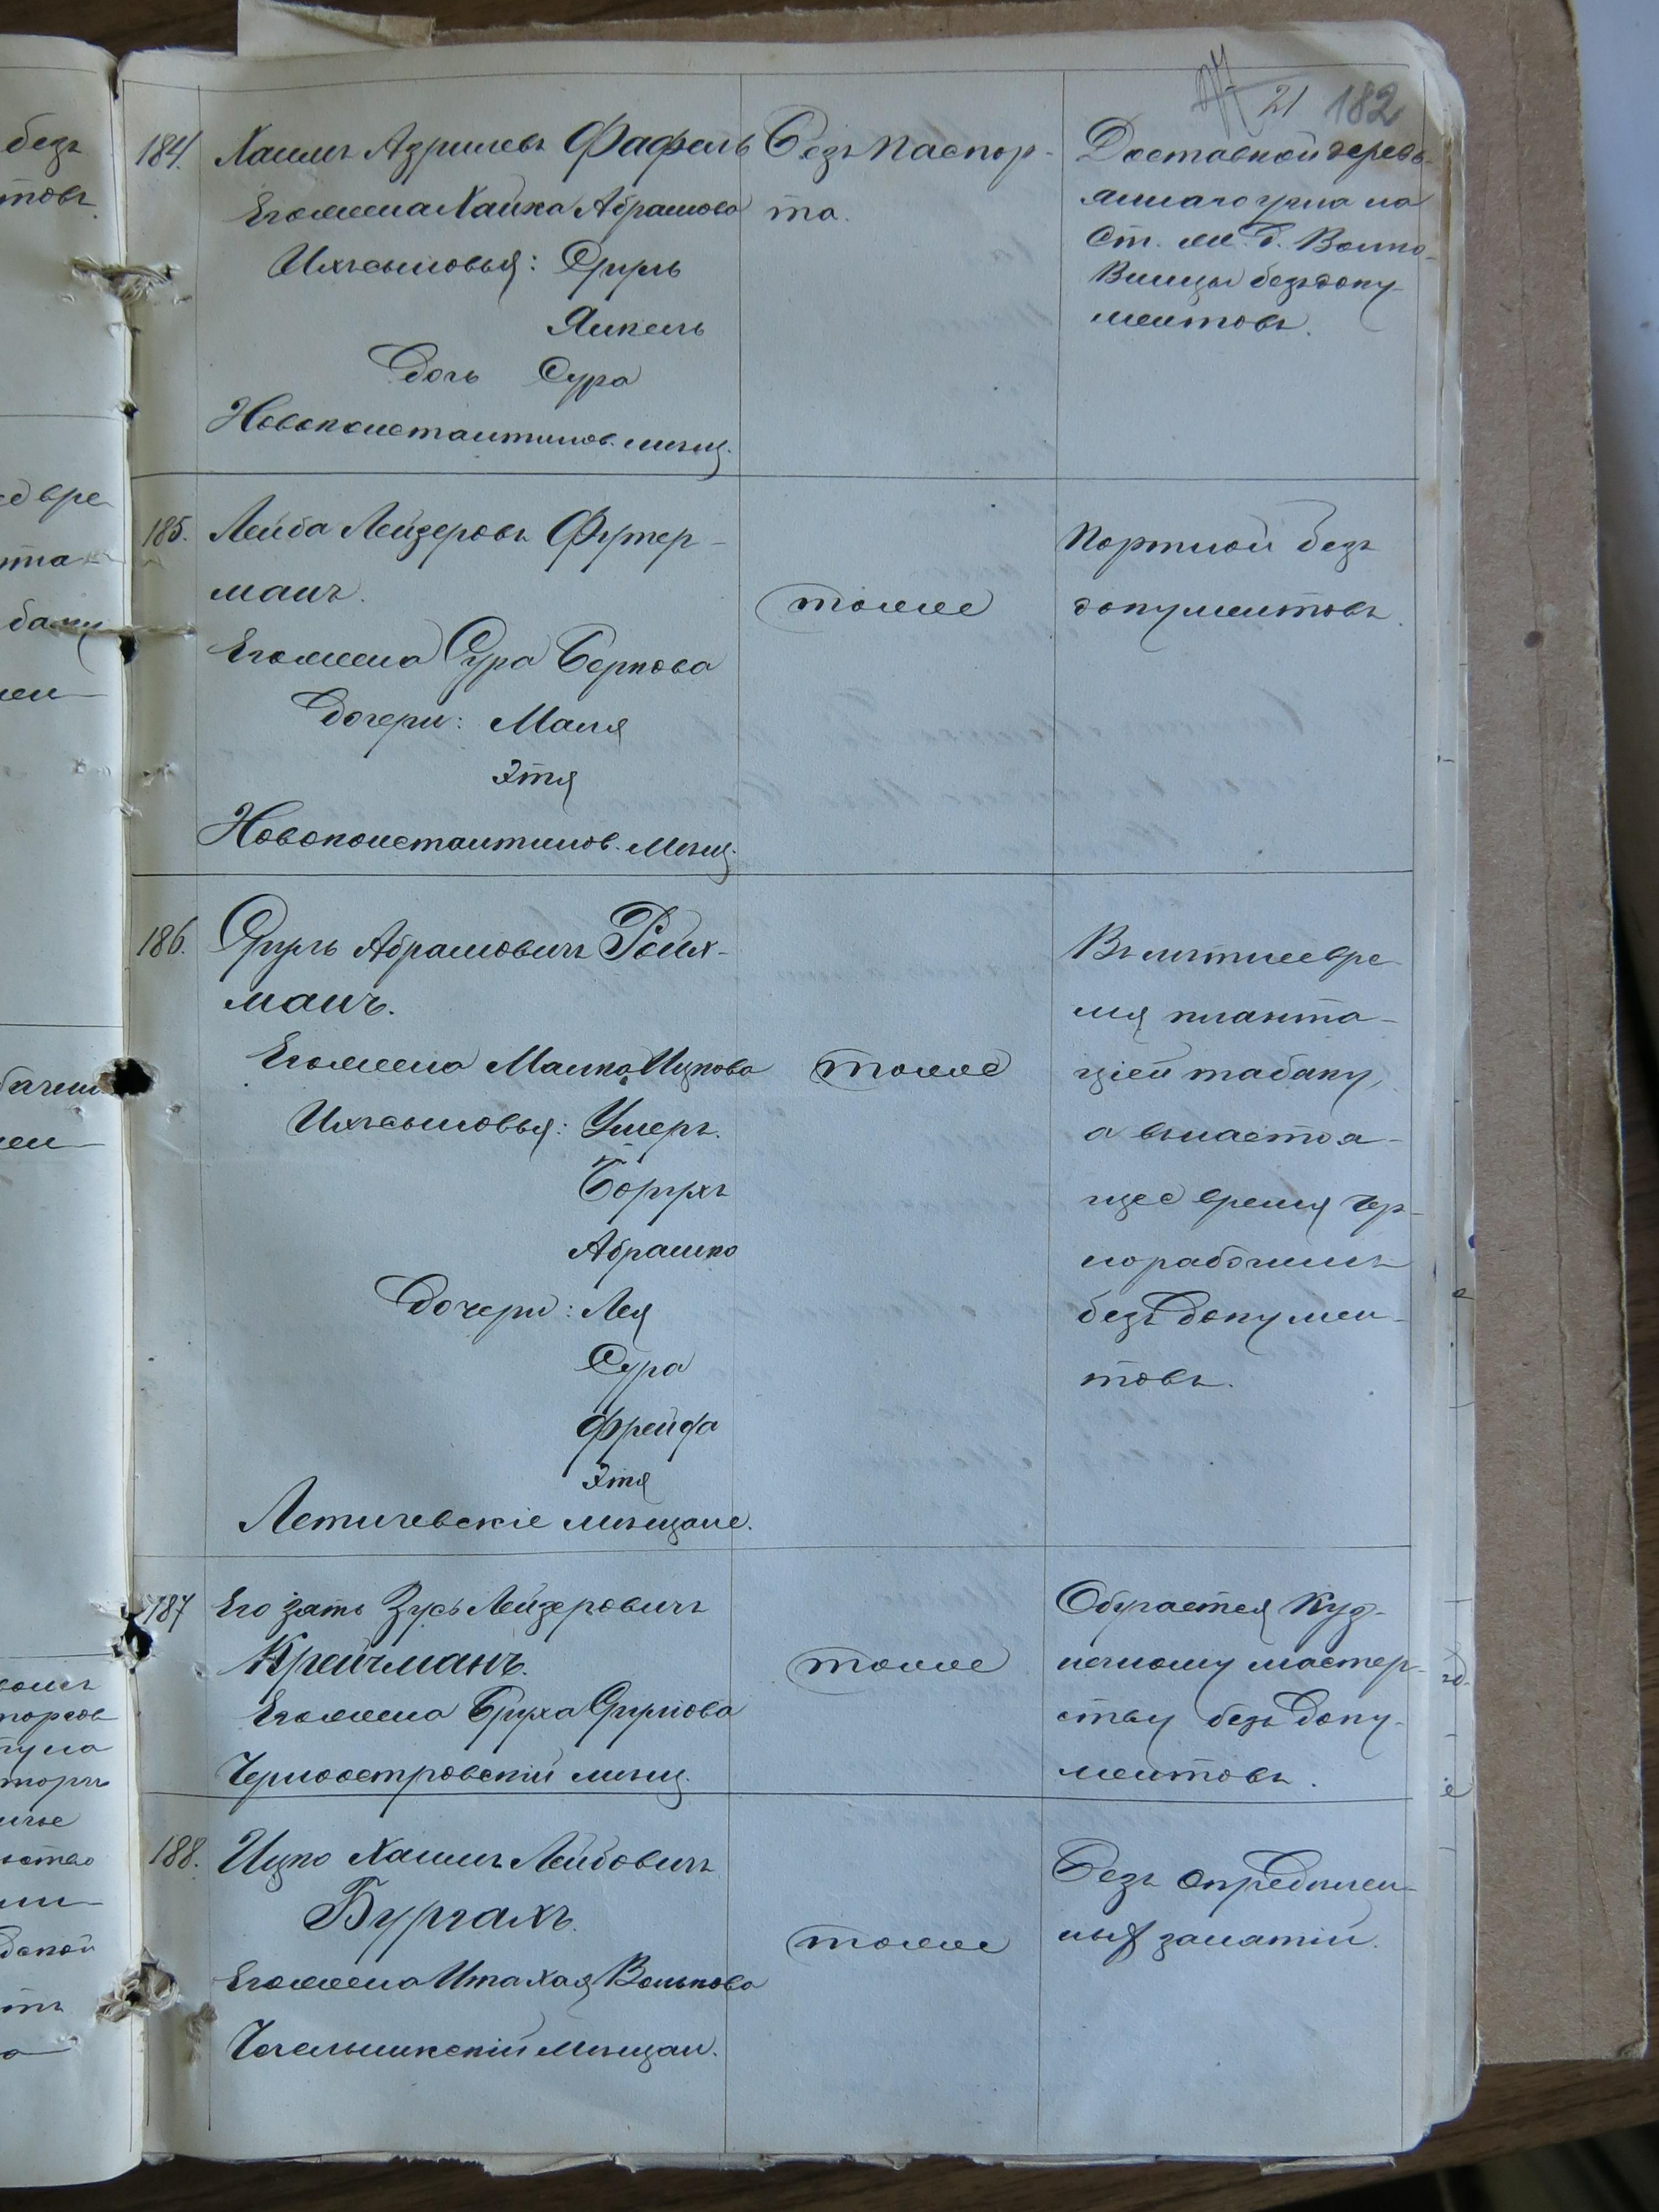 21 182
184. Хаимъ Азрилевъ Фафель
Его жена Хайка Абрамова
Ихъ сыновья: Сруль
Янкель
Дочь Сура
Новоконстантинов. мѣщ.
Безъ паспор-
та.
Доставкой деревь-
яннаго угля на
Ст. ж. д. Волко-
винцы безъ доку-
ментовъ.
185. Лейба Лейзеровъ Футер-
манъ.
Его жена Сура Беркова
Дочери: Маля
Этя
Новоконстантинов. мѣщ.
тоже
Портной безъ
документовъ.
186. Сруль Абрамовичъ Ройх-
манъ.
Его жена Малка Ицкова
Ихъ сыновья: Ушеръ.
Борухъ
Абрамко
Дочери: Лея
Сура
Фрейда
Этя
Летичевскіе мѣщане.
тоже
Въ лѣтнее вре-
мя планта-
ціей табаку,
а въ настоя-
щее время чер-
норабочимъ
безъ докумен-
товъ.
187 Его зять Зусь Лейзеровичъ
Крейчманъ.
Его жена Бруха Срулова
Черноостровскій мѣщ.
тоже
Обучается куз-
нечному мастер-
ству безъ доку-
ментовъ.
188. Ицко Хаимъ Лейбовичъ
Бургахъ.
Его жена Ита Хая Волькова
Чечельницкій мѣщан.
тоже
Безъ опредѣлен-
ныхъ занятій.